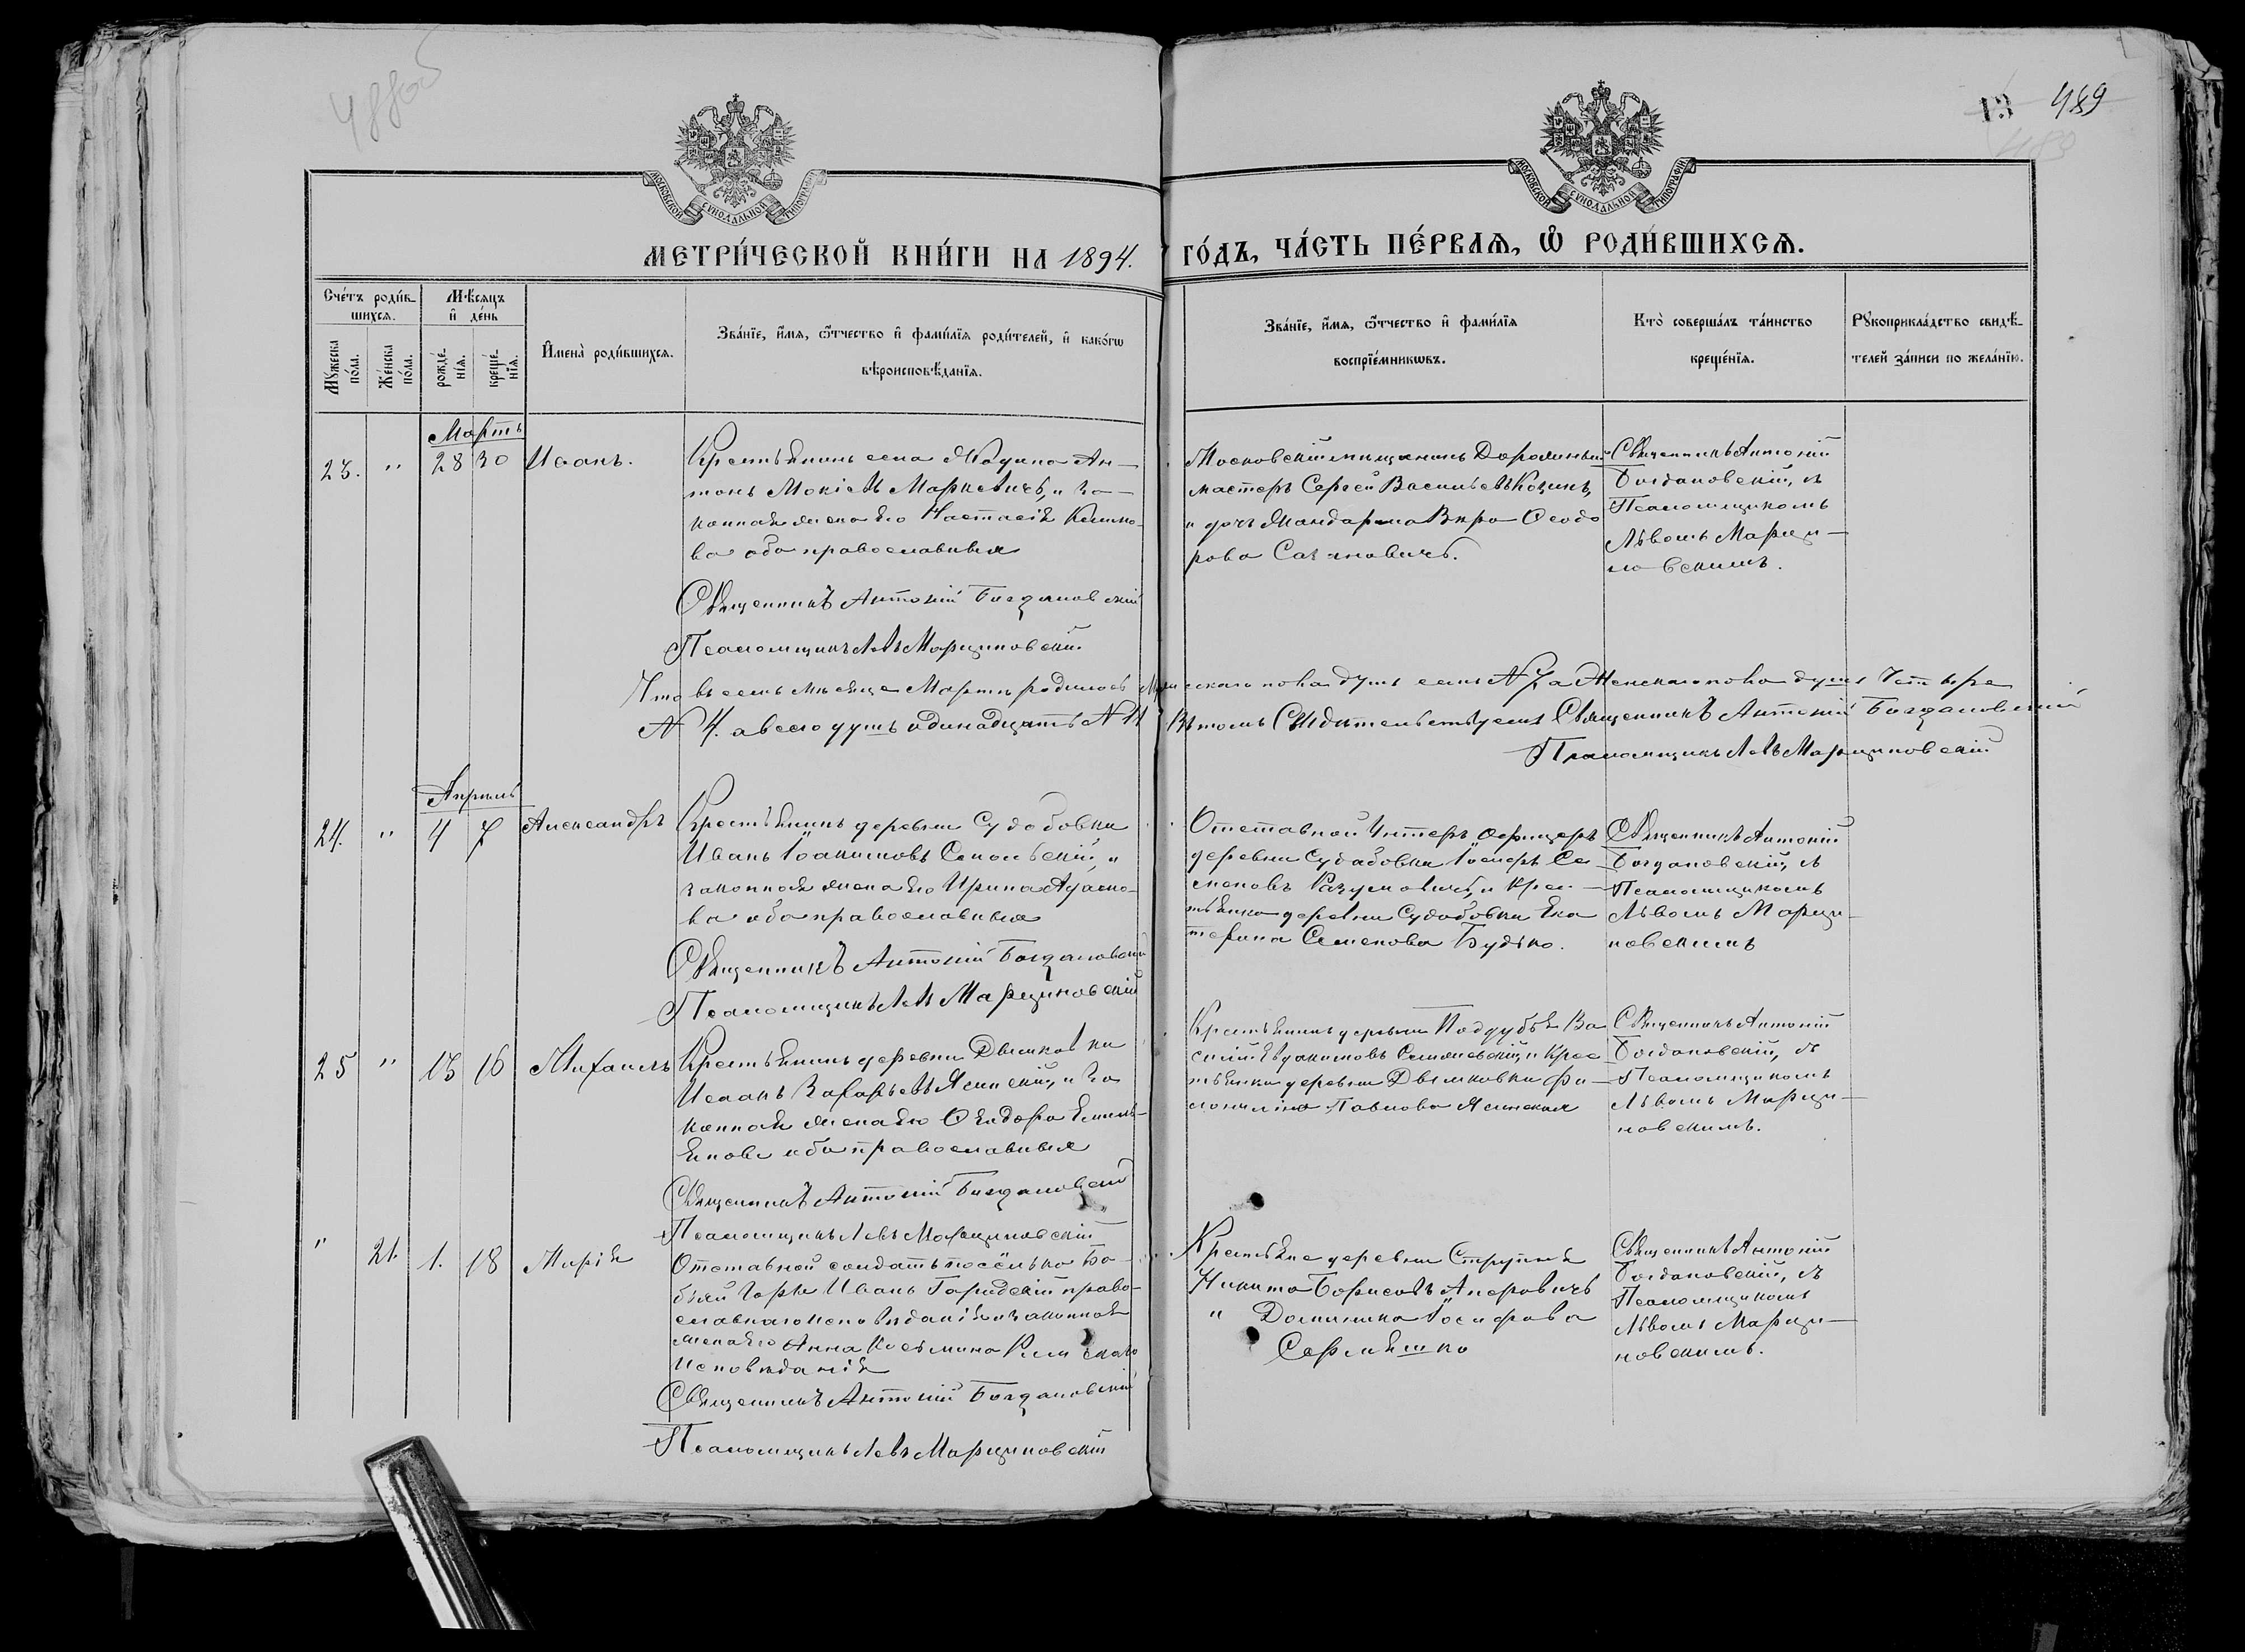 488об
13 489
489
МОСКОВСКОЙ СѴНОДАЛЬНОЙ ТИПОГРАФІИ
МОСКОВСКОЙ СѴНОДАЛЬНОЙ ТИПОГРАФІИ
МЕТРИ́ЧЕСКОЙ КНИ́ГИ НА 1894. ГО́ДЪ, ЧА́СТЬ ПЕ́РВАѦ, Ѡ҆ РОДИ́ВШИХСѦ.
Сче́тъ роди́в-
шихсѧ.
Мꙋ́жеска по́ла.
Же́нска по́ла.
Мѣ́сѧцъ
и҆ де́нь
рожде́-
нїѧ.
креще́-
нїѧ.
И҆мена̀ роди́вшихсѧ.
Зва́нїе, и҆́мѧ, ѻ҆́тчество и҆ фами́лїѧ роди́телей, и҆ како́гѡ
вѣроисповѣ́данїѧ.
Зва́нїе, и҆́мѧ, ѻ҆́тчество и҆ фами́лїѧ
воспрїе́мникѡвъ.
Кто̀ соверша́лъ та́инство
креще́нїѧ.
Рꙋкоприкла́дство свидѣ́-
телей за́писи по жела́нїю.
Мартъ
23. " 28 30 Иоанъ.
Крестьянинъ села Ан-
тонъ Мокіевъ Маркевичъ, и за-
конная жена его Настасія Климо-
ва оба православныя
Священникъ Антоній Богдановскій
Псаломщикъ Левъ Марциновскій
Московскій мищанинъ
мастеръ Сергей Васильевъ
и дочь Ѳеодо
рова
Священникъ Антоній
Богдановскій, съ
Псаломщикомъ
Львомъ Марци-
новскимъ.
Что въ семъ мѣсяце Мартѣ родилось Мужескаго пола душъ семь № 7, а Женскаго пола душъ Четыре
№ 4. а всего душъ одинадцать № 11 Въ томъ Свидительствуемъ Священникъ Антоній Богдановскій
Псаломщикъ Левъ Марциновскій
Апрель
24. " 4 7 Александръ
Крестьянинъ деревни Судобовки
Иванъ Іоакимовъ и
законная жена его Ирина Адамо-
ва оба православныя
Священникъ Антоній Богдановскій
Псаломщикъ Левъ Марциновскій
Отставной Унтеръ офицеръ
деревни Судабовки Іосифъ Се
меновъ Разумовичъ, и крес-
тьянка деревни Судобовки Ека
терина Семенова Будько.
Священникъ Антоній
Богдановскій, съ
Псаломщикомъ
Львомъ Марци-
новскимъ
25 " 13 16 Михаилъ
Крестьянинъ деревни Дымковки
Исаакъ Захарьевъ Ясинскій, и за
конная жена его Ѳеодора Емель-
янова оба православныя
Священникъ Антоній Богдановскій
Псаломщикъ Левъ Марциновскій
Крестьянинъ деревни Поддубья Ва
силій Евдокимовъ и Крес
тьянка деревни Дымковки Фи-
Павлова Ясинская
Священникъ Антоній
Богдановскій, съ
Псаломщикомъ
Львомъ Марци-
новскимъ.
" 21. 1. 18 Марія
Отставной солдатъ посёлка Ба-
бьей Горы Иванъ право-
славнаго исповѣданія и законная
жена его Анна Косьмина Римскаго
Исповѣданія
Священникъ Антоній Богдановскій
Псаломщикъ Левъ Марциновскій
Крестьяне деревни Струпня
Никита Борисовъ
" Доминика Іосифова
Священникъ Антоній
Богдановскій, съ
Псаломщикомъ
Львомъ Марци-
новскимъ.